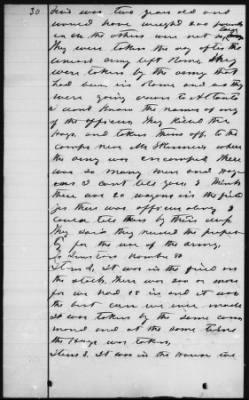 30 this was two years old and
would have weight 200 pounds
each the others were not so large
They were taken the day after the
army left Rome. They
were taken by the army that
had been in Rome and as they
were going down to Atlanta
I dont know the names of any
of the officers they killed the
hogs and taken them off to the
camps near Mr where
the army was encamped there
was so many men and wag
ons I cant tell you I think
there was 20 wagons in the field
yes there was officers along I
could tell them by their
They said they needed the proper
ty for the use of the army.
Question Number 80
Item 2, It was in the field on
the stalk, there was 200 or more
for we had 15 in and it was
the best corn we ever made
It was taken by the same com
mand and at the same time
the Hogs was taken,
Item 3. It was in the House we